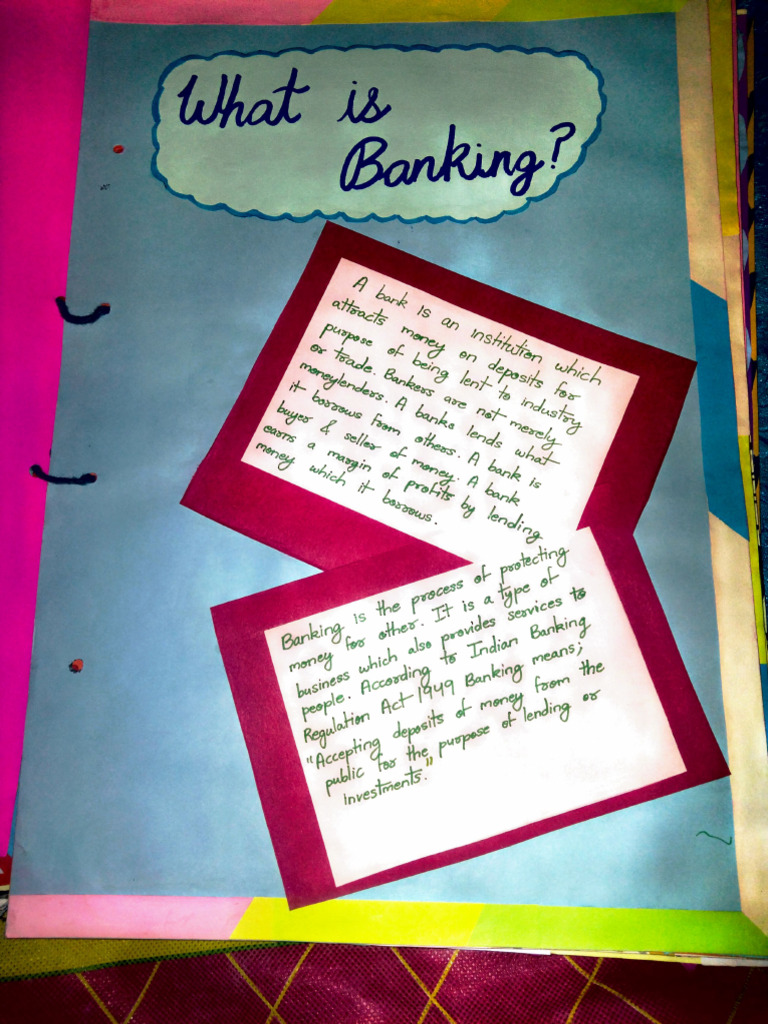 What is
Banking?
A bank is an institution which
attracts money on deposits for
purpose of being lent to industry
or trade. Bankers are not merely
moneylenders. A banks lends what
it borrows from others. A bank is
buyer & seller of money. A bank
earns a margin of profits by lending
money which it borrows.
Banking is the process of protecting
money for other. It is a type of
business which also provides services to
people. According to Indian Banking
Regulation Act 1949 Banking means;
"Accepting deposits of money from the
public for the purpose of lending or
investments."